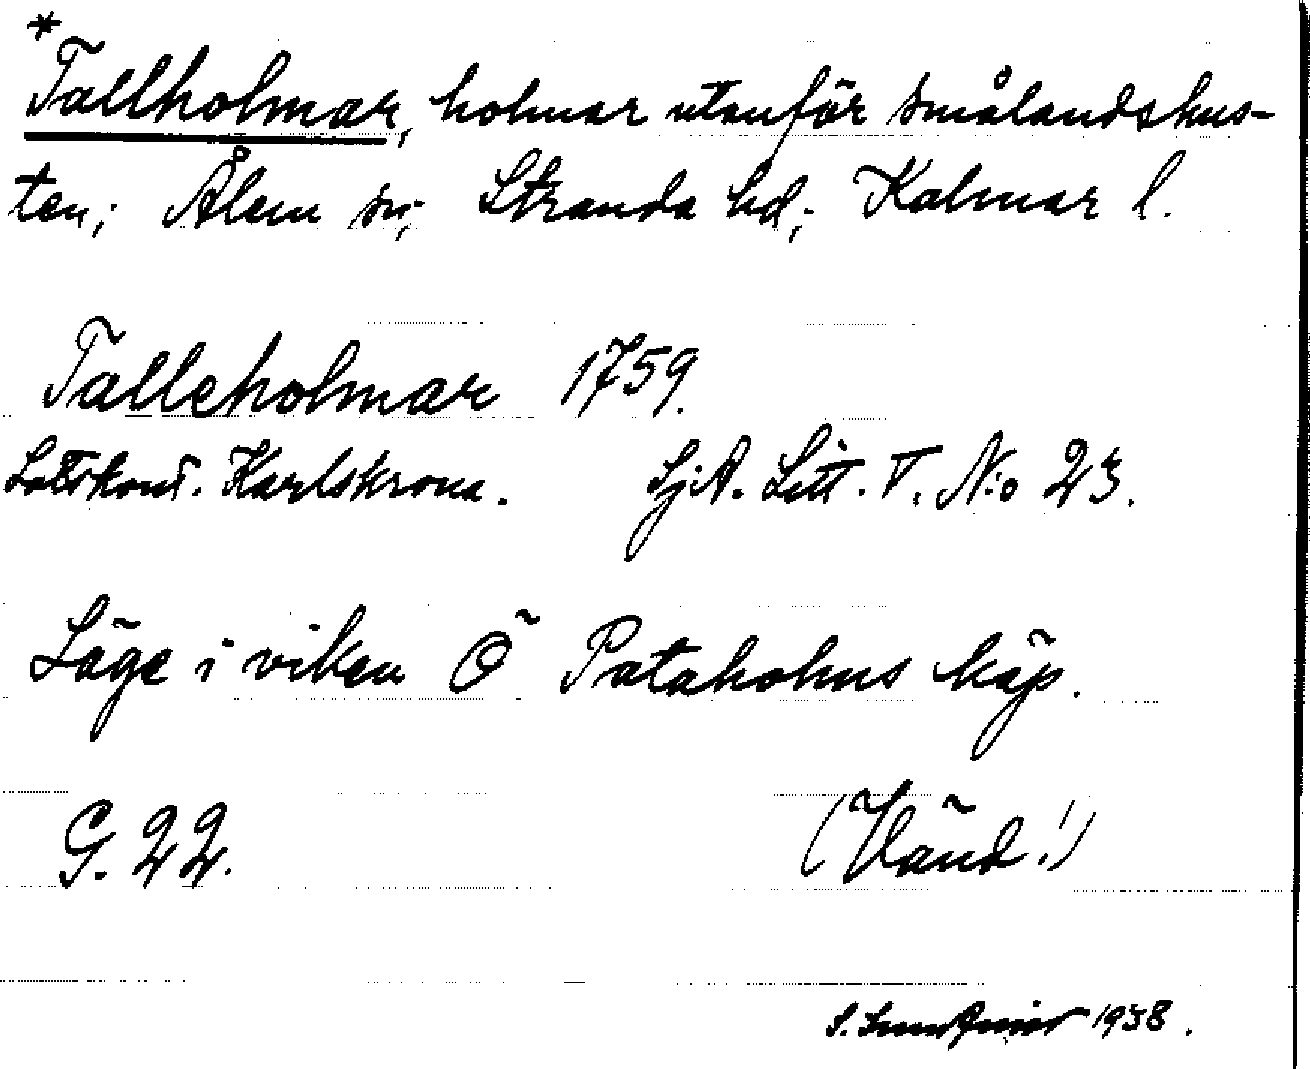 *Tallholmar, holmar utanför smålandskus-
ten; Ålem sn; Stranda hd; Kalmar l.
Talleholmar 1759.
Lotskont. Karlskrona. SjA. Litt. T. N:o 23.
Läge i viken Ö Pataholms köp.
G. 22. (Vänd!)
S. 1938.